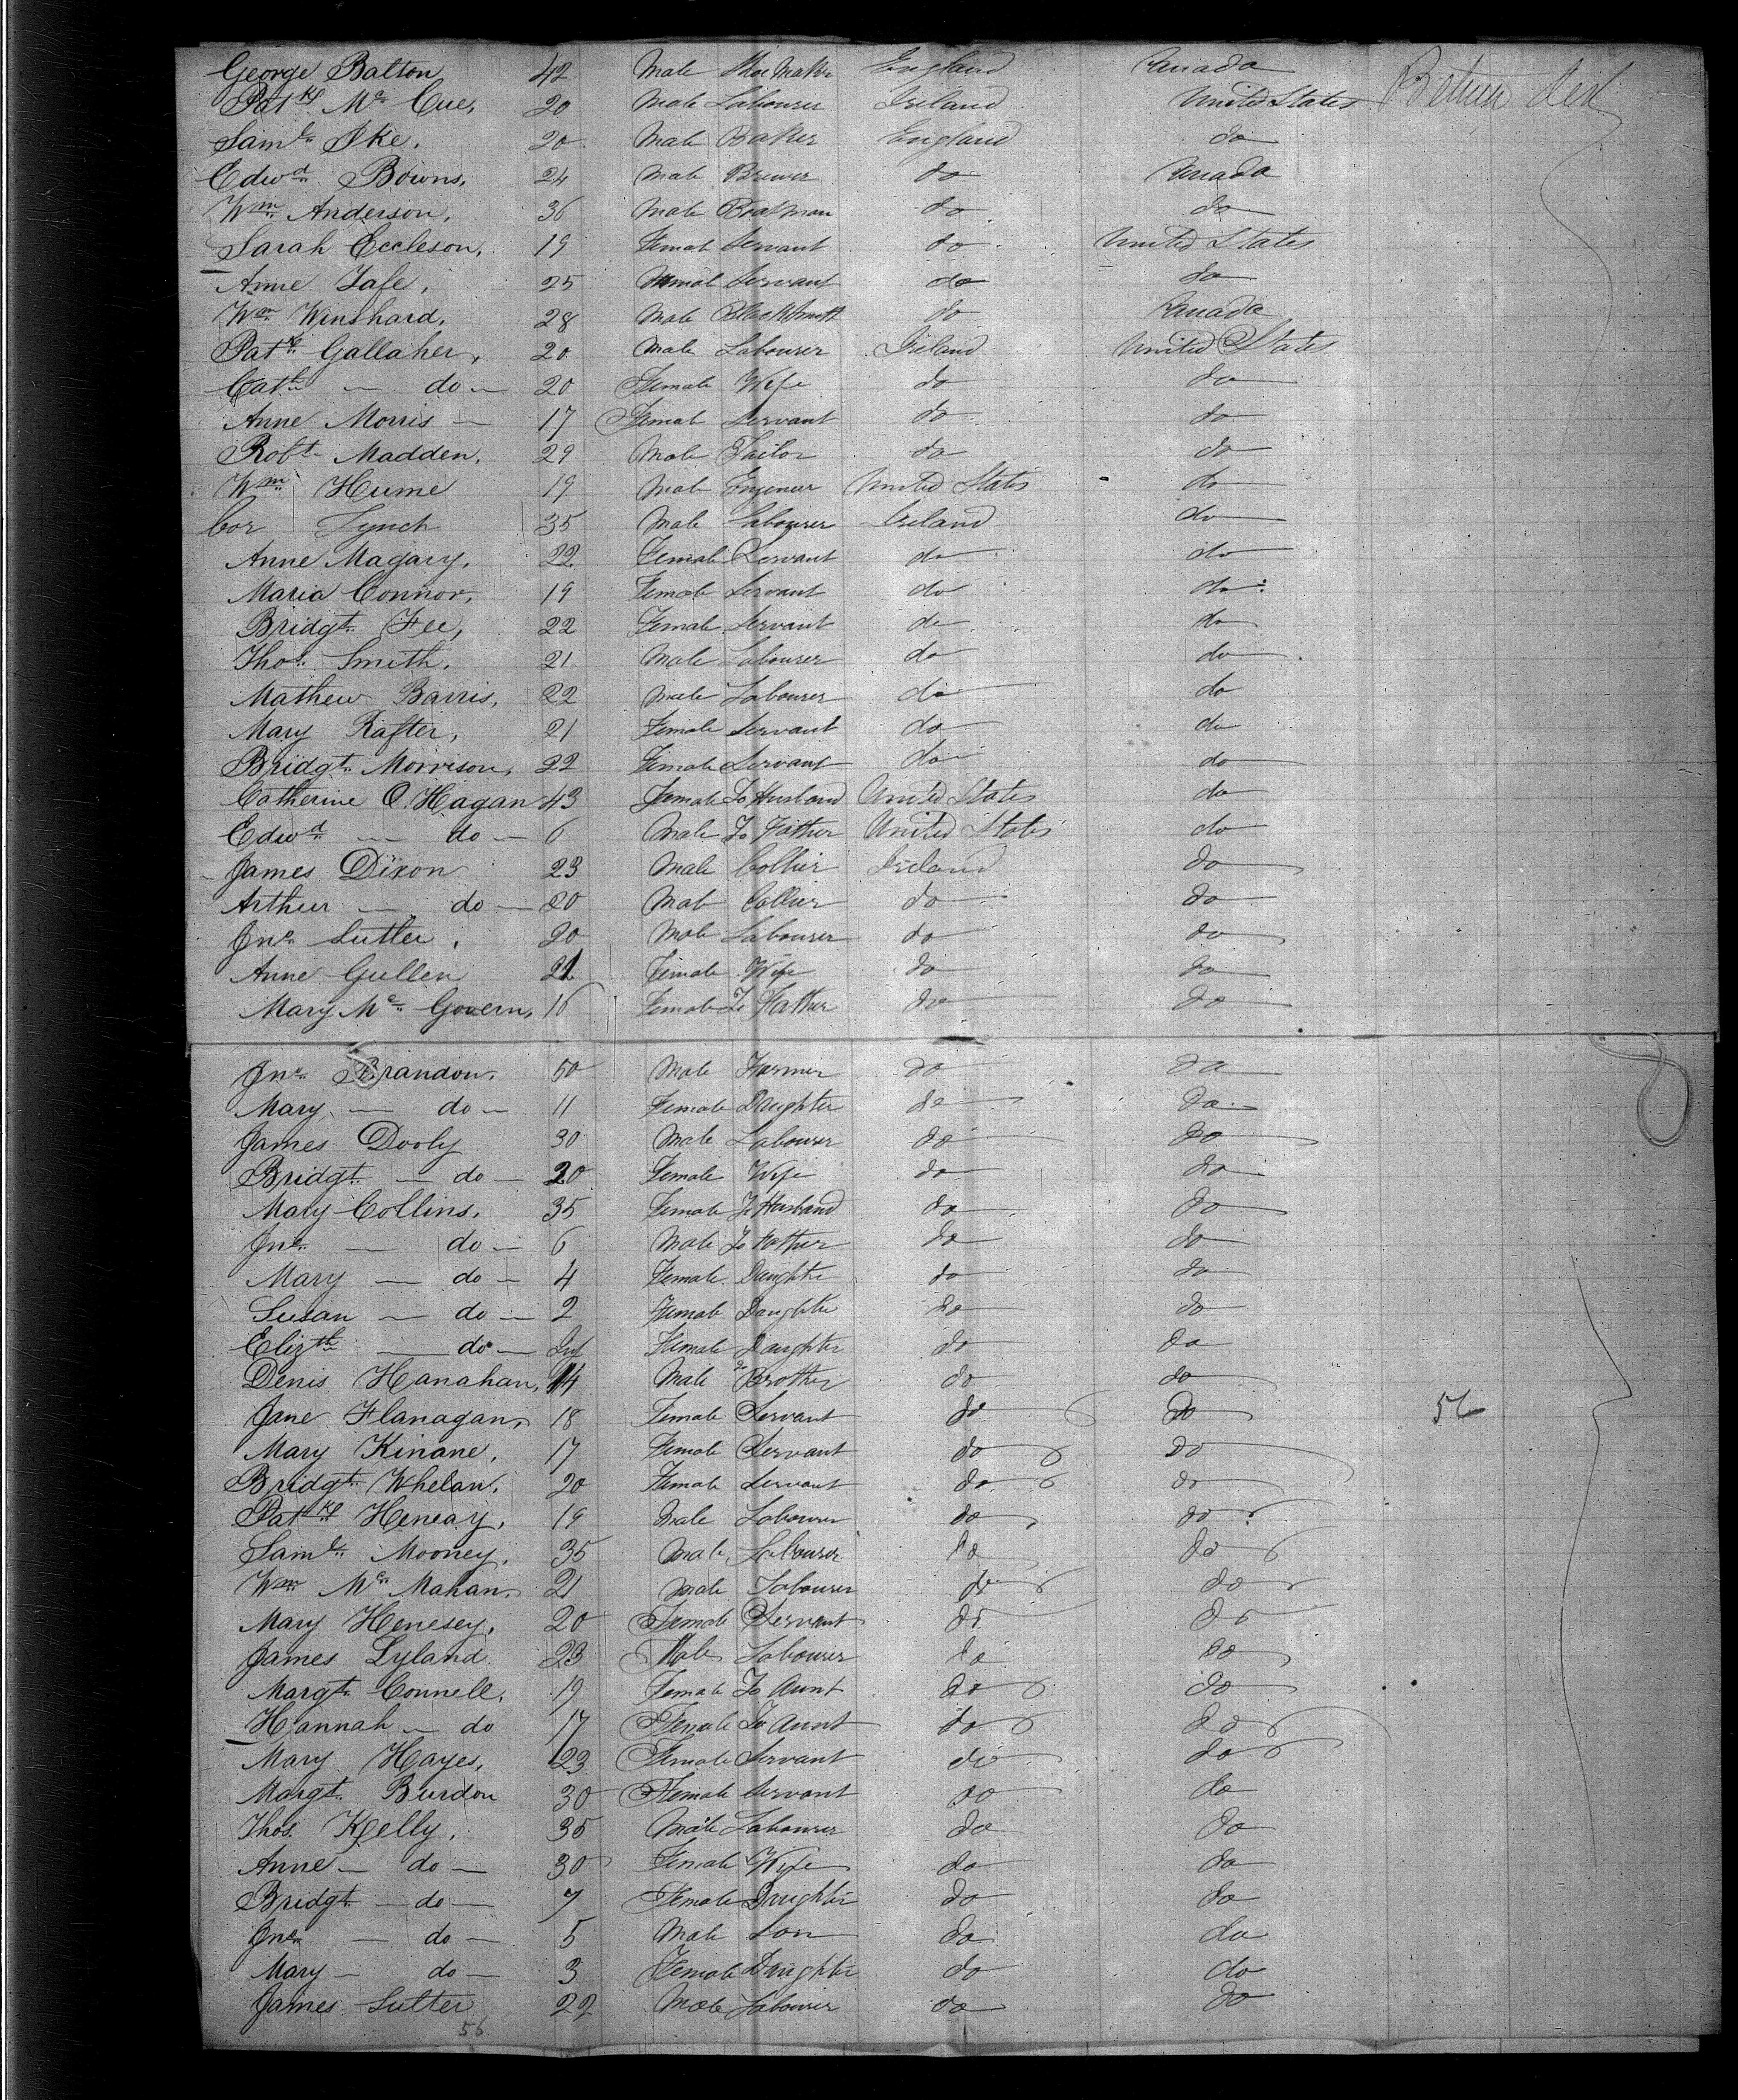 George Balton 42 Male Shoe Maker England Canada
Patk Mc Cue, 20 Male Labourer Ireland United States
Saml Ike. 20 Male Baker England do
Edwd Bowns, 24 Male Brewer do Canada
Wm Anderson, 36 Male Boatman do do
Sarah Eccleson, 19 Female Servant do United States
25 Servant do do
Wm Winshard, 28 Male Blacksmith do Canada
Patk Gallaher, 20 Male Labourer Ireland United States
Cath — do — 20 Female Wife do do
Anne Morris — 17 Female Servant do do
Robt Madden, 29 Male Tailor do do
Wm Hume 19 Male Engineer United States do
Cor Lynch 35 Male Labourer Ireland do
Anne Magary, 22 Female Servant do do
Maria Connor, 19 Female Servant do do
Bridgt Fee, 22 Female Servant do do
Thos Smith. 21 Male Labourer do do
Mathew Barris, 22 Male Labourer do do
Mary Rafter, 21 Female Servant do do
Bridgt Morrison, 22 Female Servant do do
Catherine O'Hagan 43 Female To Husband United States do
Edwd — do — 6 Male To Father United States do
James Dixon 23 Male Collier Ireland do
Arthur — do — 20 Male Collier do do
Jno Sutler, 20 Male Labourer do do
Anne Gullen 21 Female Wife do do
Mary Mc Govern, 16 Female To Father do do
Jno Brandon, 50 Male Farmer do do
Mary — do — 11 Female Daughter do do
James Dooly 30 Male Labourer do do
Bridgt — do — 20 Female Wife do do
Mary Collins, 35 Female To Husband do do
Jno — do — 6 Male To Father do do
Mary — do — 4 Female Daughter do do
Susan — do — 2 Female Daughter do do
Elizth — do — Inf Female Daughter do do
Denis Hanahan, 14 Male To Brother do do
Jane Flanagan, 18 Female Servant do do 56
Mary Kinane, 17 Female Servant do do
Bridgt Whelan, 20 Female Servant do do
Patk Heneay, 19 Male Labourer do do
Saml Mooney, 35 Male Labourer do do
Wm Mc Mahan, 21 Male Labourer do do
Mary Henesey, 20 Female Servant do do
James Lyland 23 Male Labourer do do
Margt Connell, 19 Female To Aunt do do
Hannah — do 17 Female To Aunt do do
Mary Hayes, 23 Female Servant do do
Margt Burdon 30 Female Servant do do
Thos Kelly, 35 Male Labourer do do
Anne — do — 30 Female Wife do do
Bridgt — do — 7 Female Daughter do do
Jno — do — 5 Male Son do do
Mary — do — 3 Female Daughter do do
James Sutter 22 Male Labourer do do
56